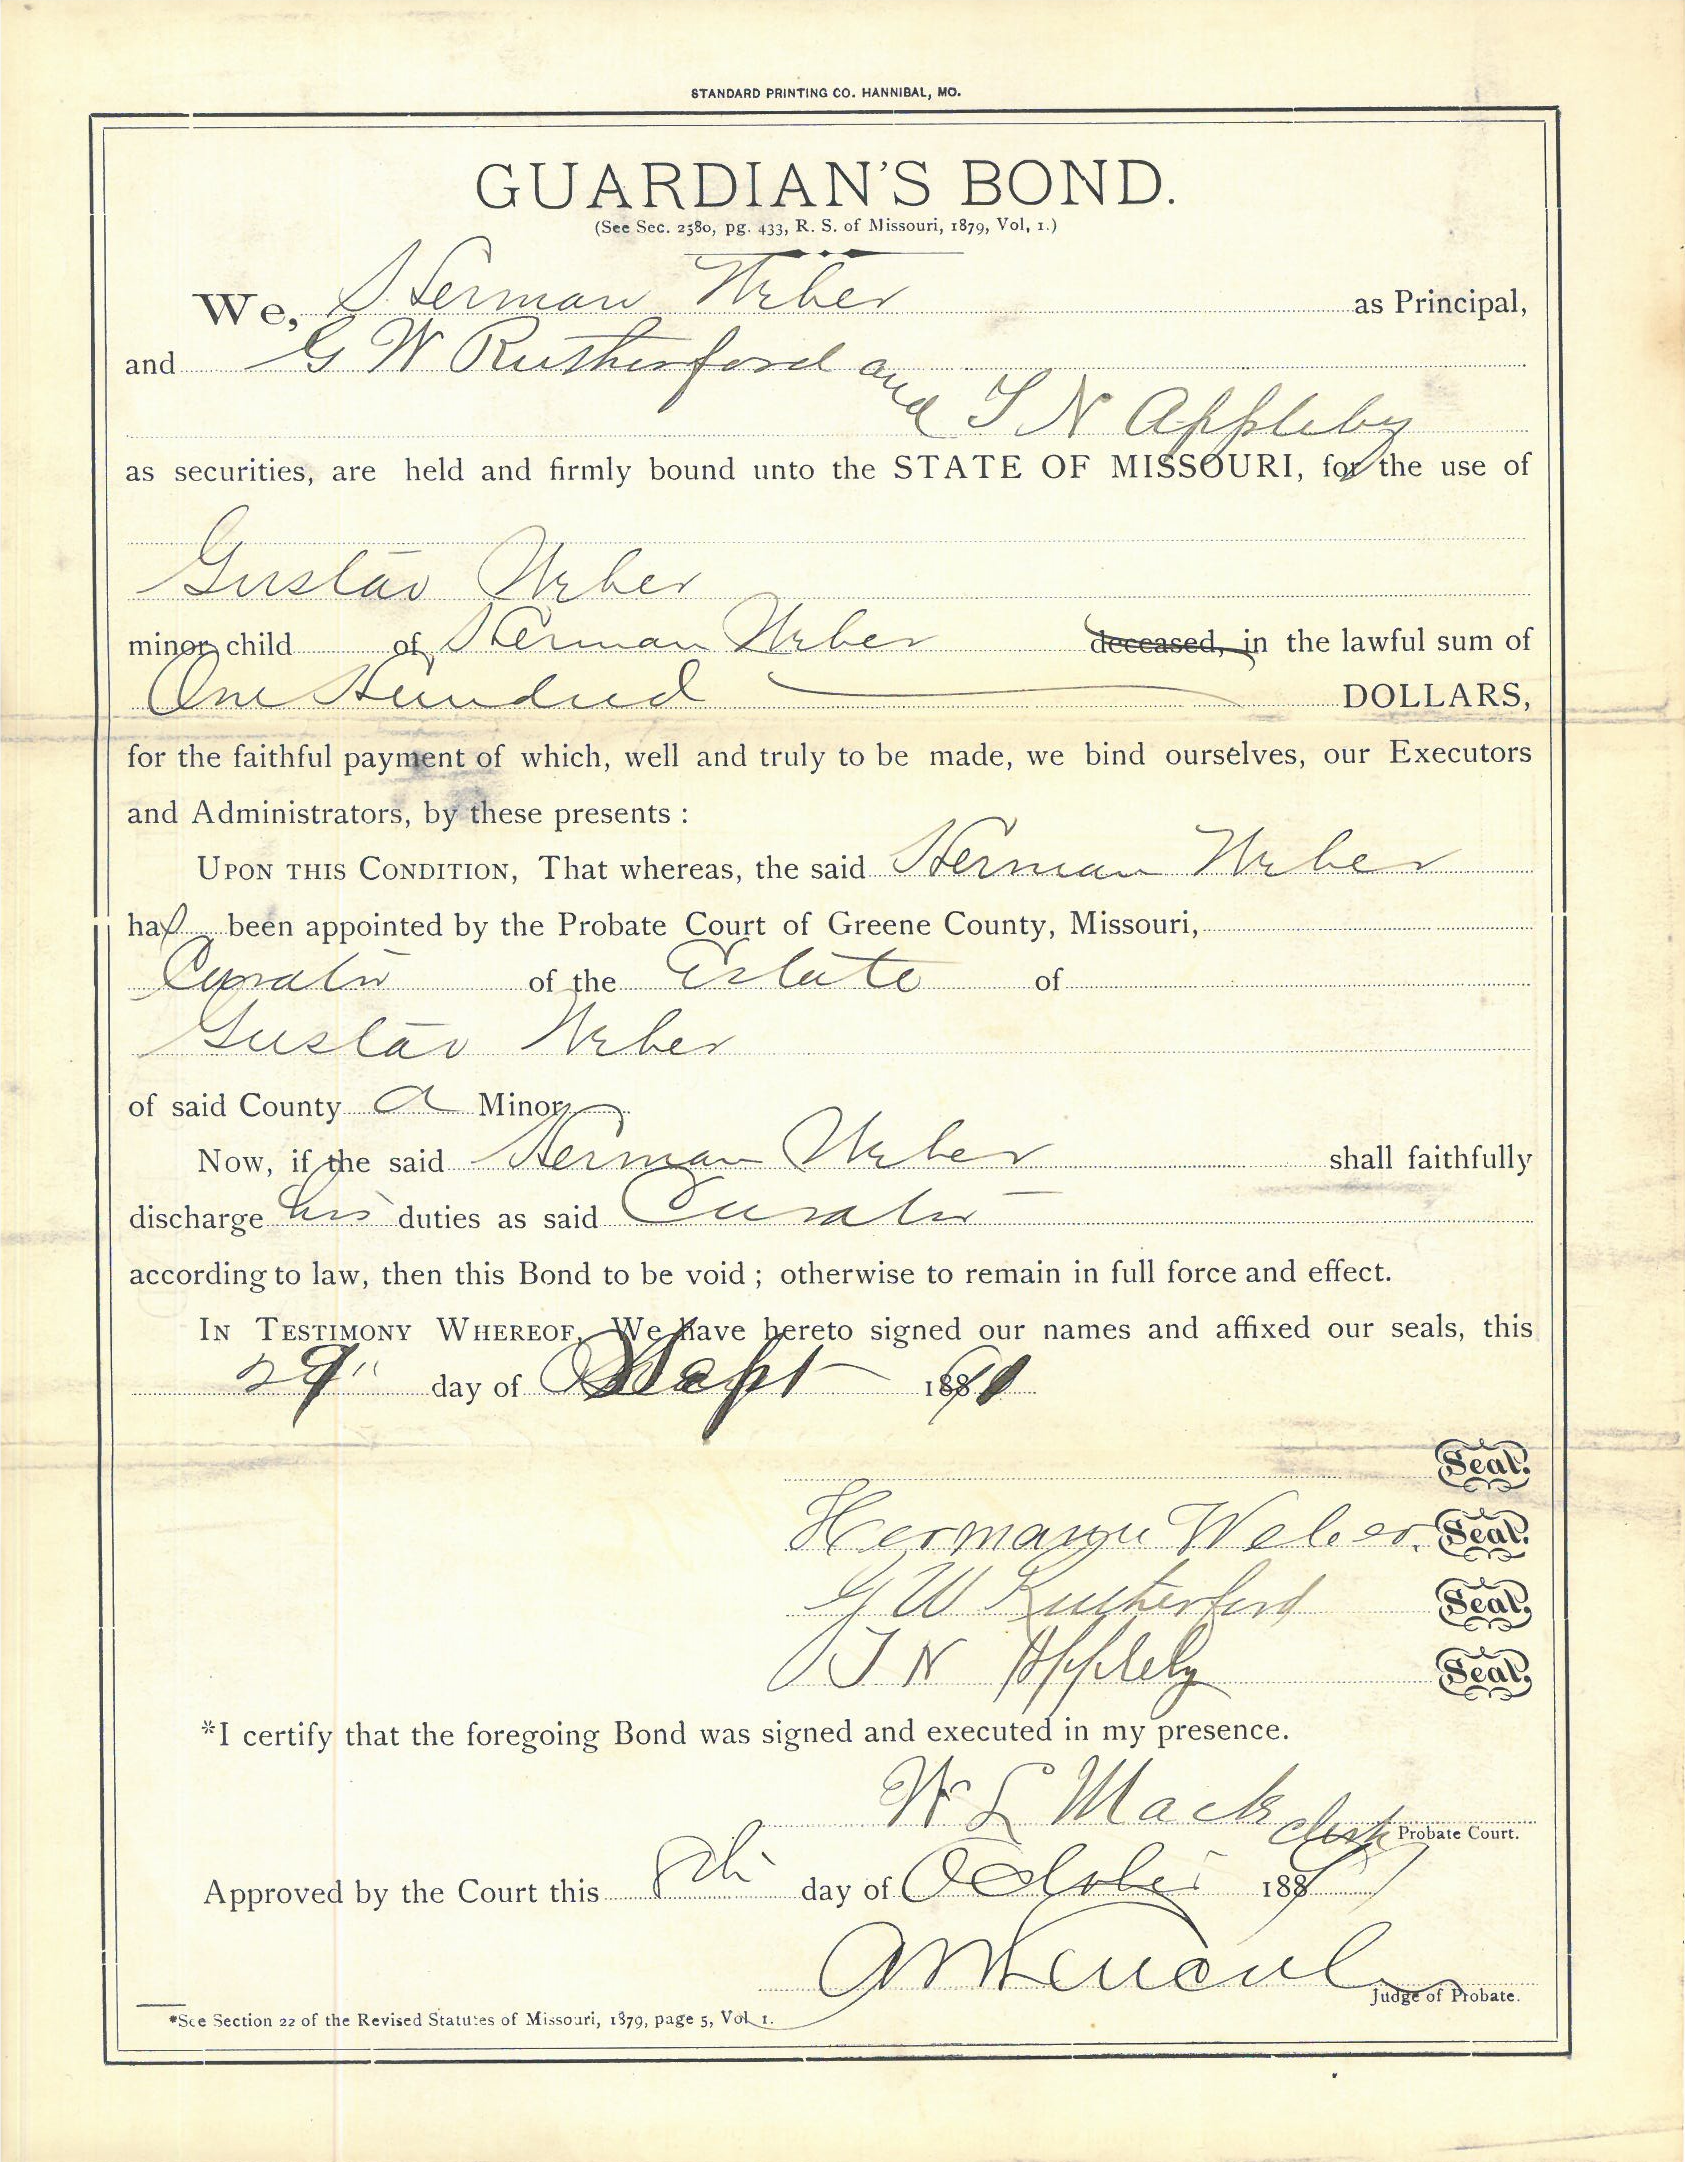 STANDARD PRINTING CO. HANNIBAL, MO.
GUARDIAN'S BOND.
(See Sec. 2580, pg. 433, R. S. of Missouri, 1879, Vol, 1.)
We, Herman Weber as Principal,
and G W Rutherford and
T N Appleby
as securities, are held and firmly bound unto the STATE OF MISSOURI, for the use of
Gustav Weber
minor child of Herman Weber deceased, in the lawful sum of
One Hundred DOLLARS,
for the faithful payment of which, well and truly to be made, we bind ourselves, our Executors
and Administrators, by these presents :
UPON THIS CONDITION, That whereas, the said Herman Weber
has been appointed by the Probate Court of Greene County, Missouri,
Curator of the Estate of
Gustav Weber
of said County a Minor
Now, if the said Herman Weber shall faithfully
discharge his duties as said Curator
according to law, then this Bond to be void ; otherwise to remain in full force and effect.
IN TESTIMONY WHEREOF, We have hereto signed our names and affixed our seals, this
29" day of Sept 1891
Seal.
Hermann Weber. Seal.
G W Rutherford Seal.
T N Appleby Seal.
*I certify that the foregoing Bond was signed and executed in my presence.
W L Mack clerk Probate Court.
Approved by the Court this 8th day of October 188
Judge of Probate.
*See Section 22 of the Revised Statutes of Missouri, 1879, page 5, Vol 1.